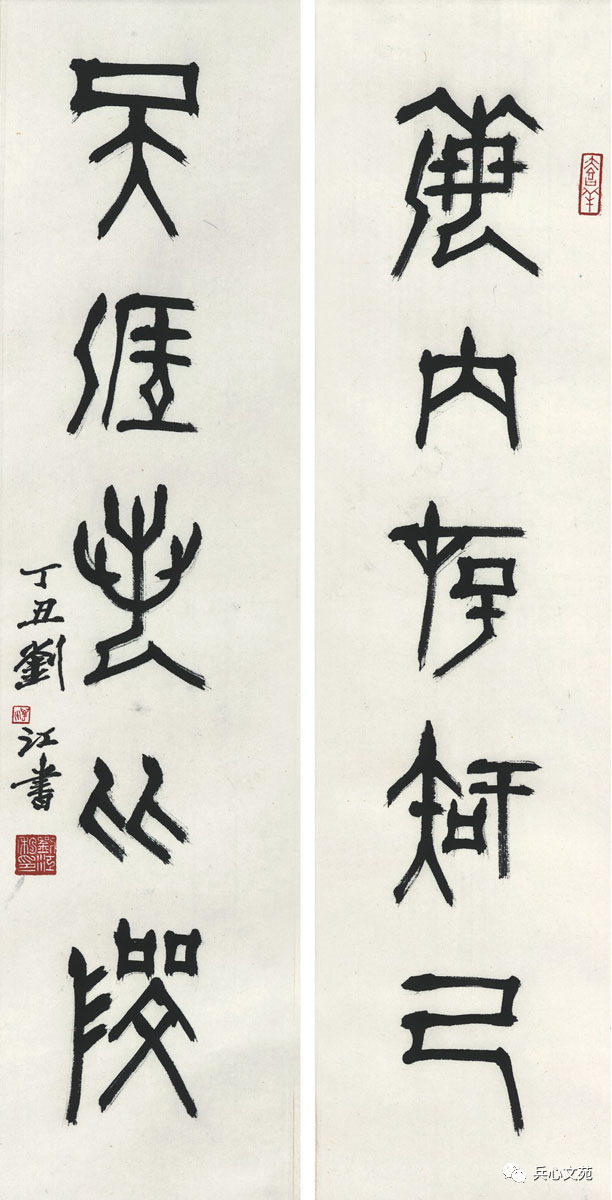 海内存知己
天涯若比邻
丁丑劉江書
兵心文苑